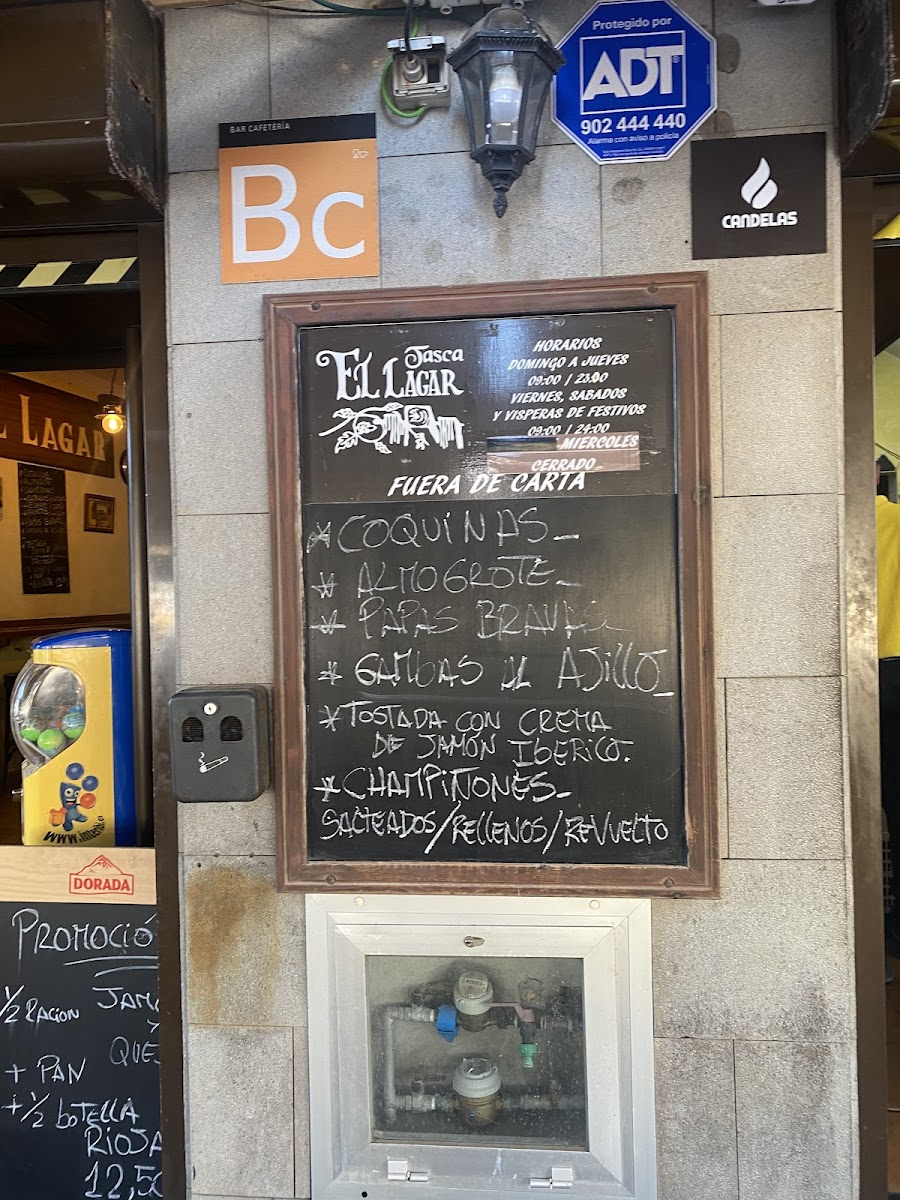 Protegido por
ADT
902 444 440
Alarma con aviso a policía
BAR CAFETERÍA
Bc
CANDELAS
Tasca
EL LAGAR
HORARIOS
DOMINGO A JUEVES
09:00 / 23:00
VIERNES, SABADOS
Y VISPERAS DE FESTIVOS
09:00 / 24:00
MIERCOLES
CERRADO
FUERA DE CARTA
* COQUINAS_
* ALMOGROTE_
* PAPAS BRAVAS_
* GAMBAS AL AJILLO_
* TOSTADA CON CREMA
DE JAMÓN IBERICO.
* CHAMPIÑONES_
SALTEADOS/RELLENOS/REVUELTO
L LAGAR
DORADA
PROMOCIÓ
1/2 RACION JAM
Y
QUES
+ PAN
+ 1/2 BOTELLA
RIOJA
12,50